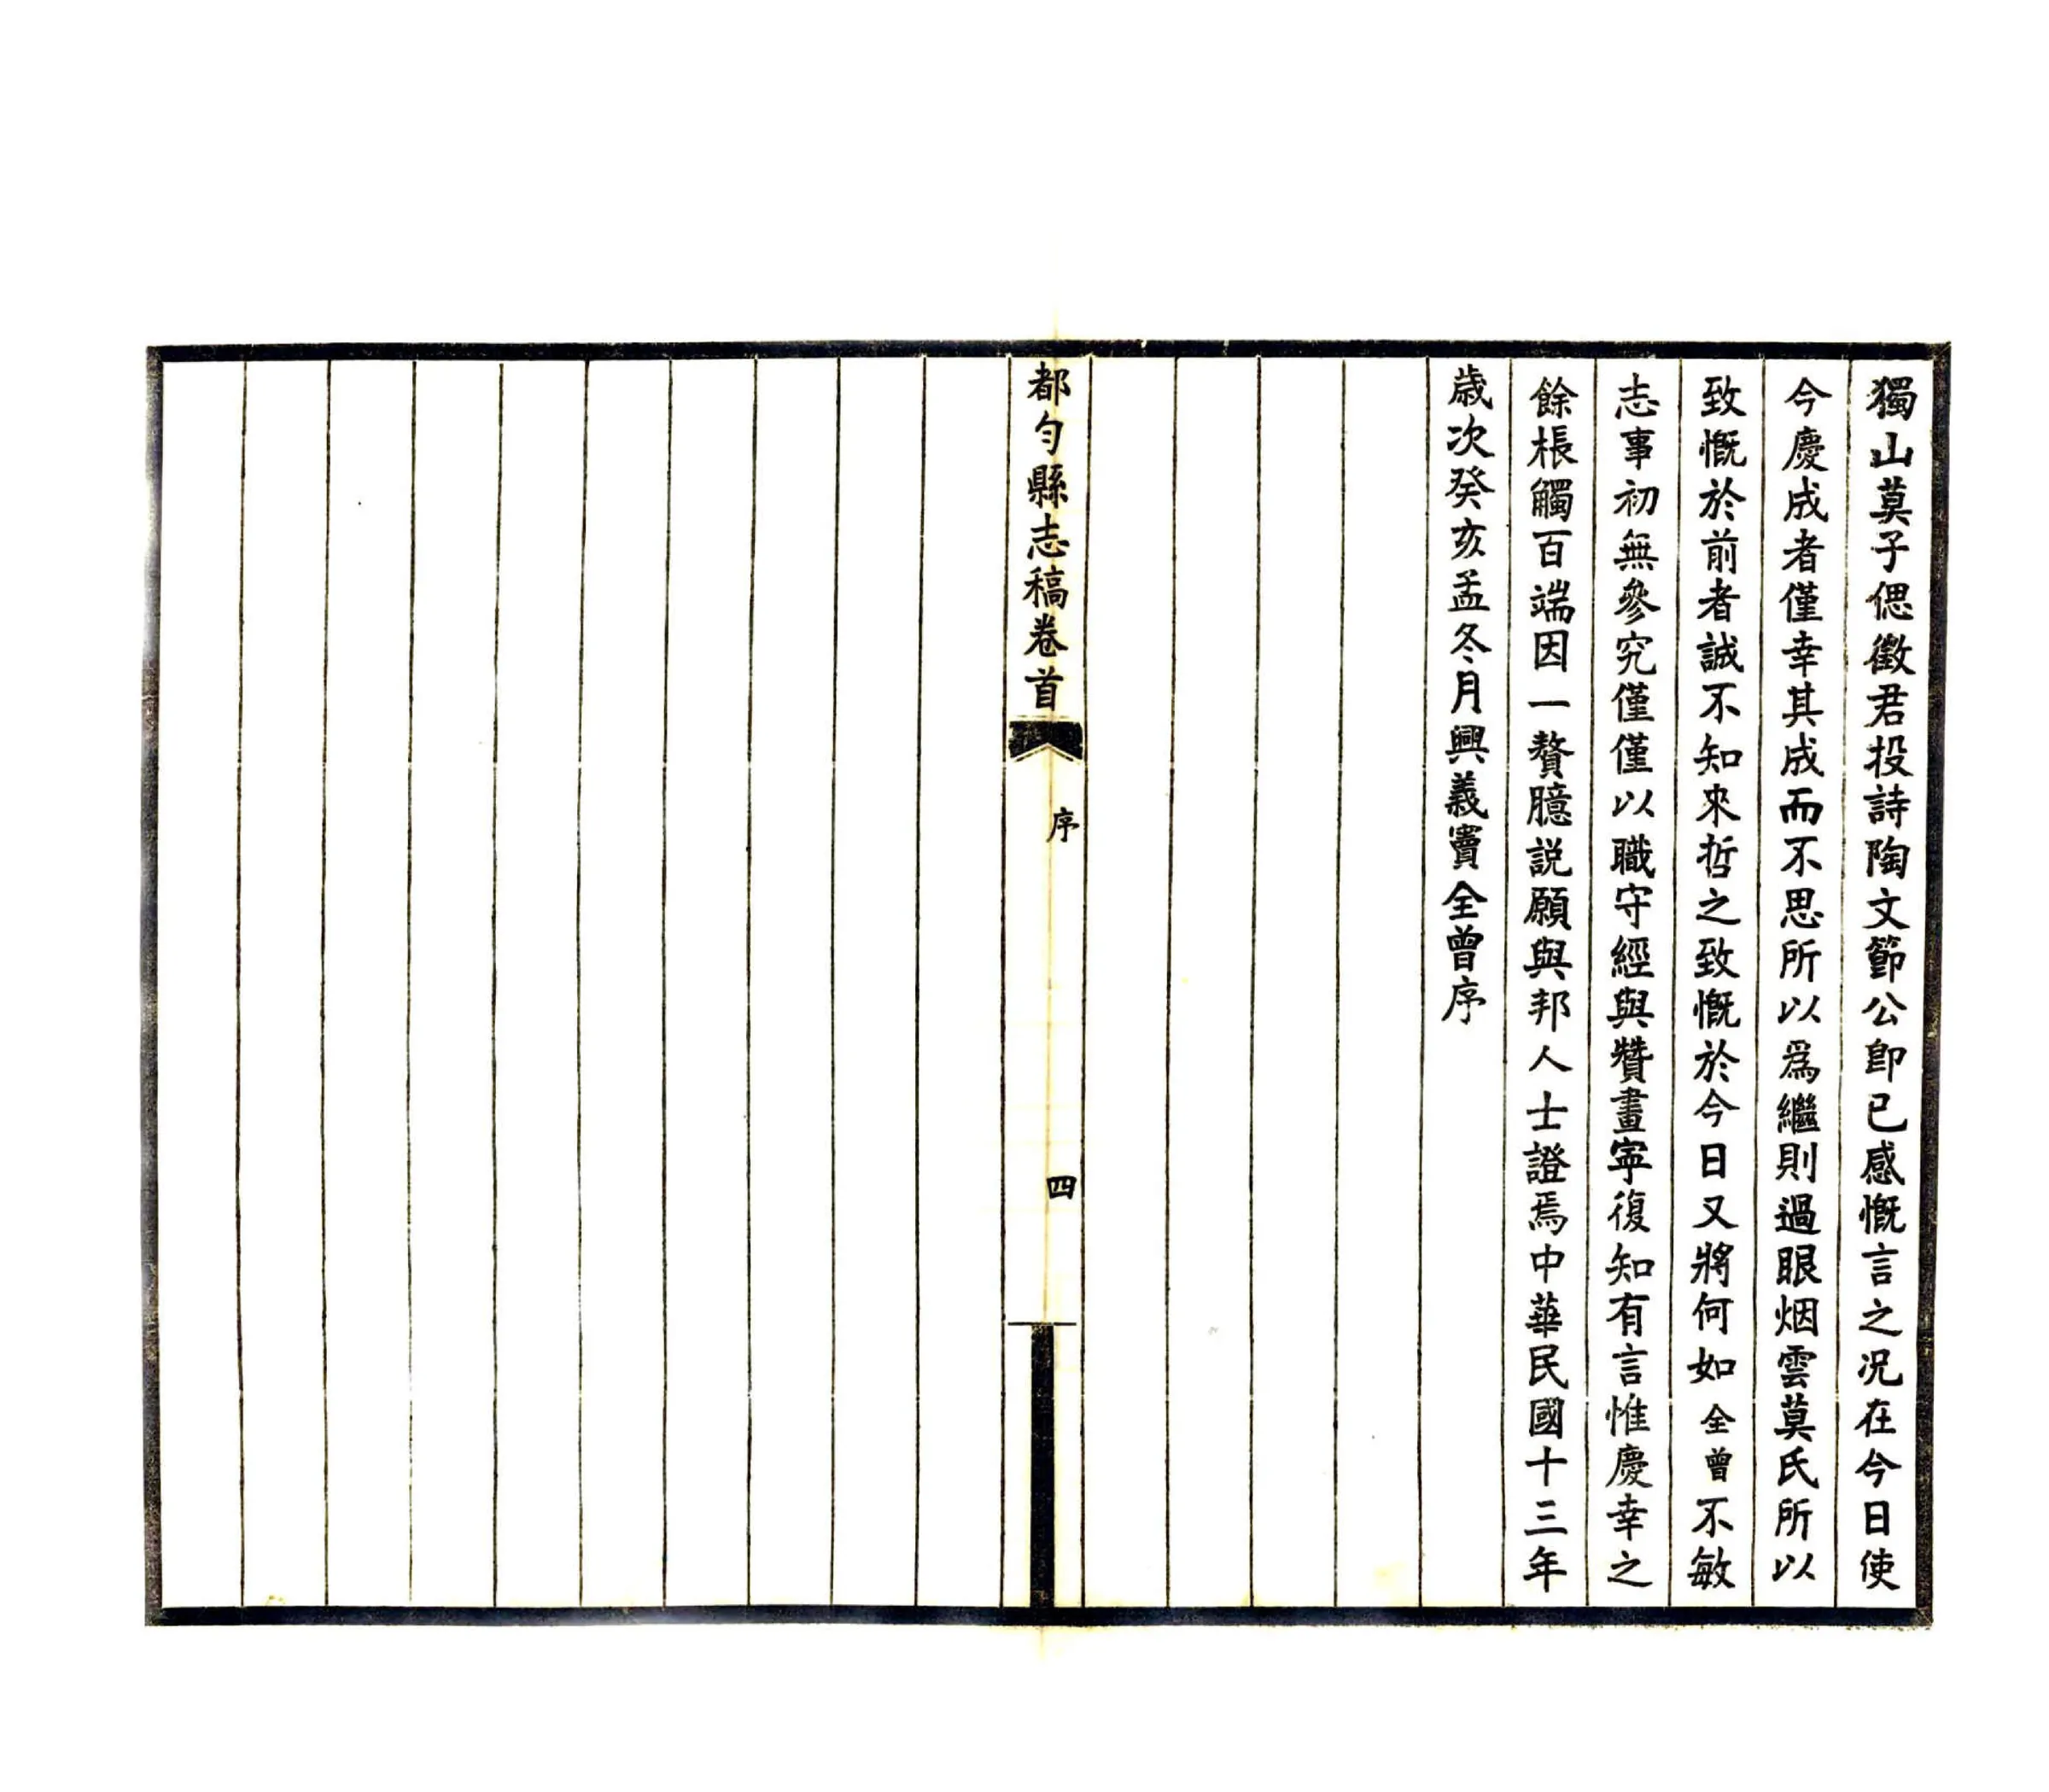 獨山莫子偲徵君投詩陶文節公卽已感慨言之况在今日使
今慶成者僅幸其成而不思所以爲繼則過眼烟雲莫氏所以
致慨於前者誠不知來哲之致慨於今日又將何如全曾不敏
志事初無參究僅僅以職守經與贊畫寧復知有言惟慶幸之
餘棖觸百端因一贅臆説願與邦人士證焉中華民國十三年
歲次癸亥孟冬月興義竇全曾序
都勻縣志稿卷首
序
四